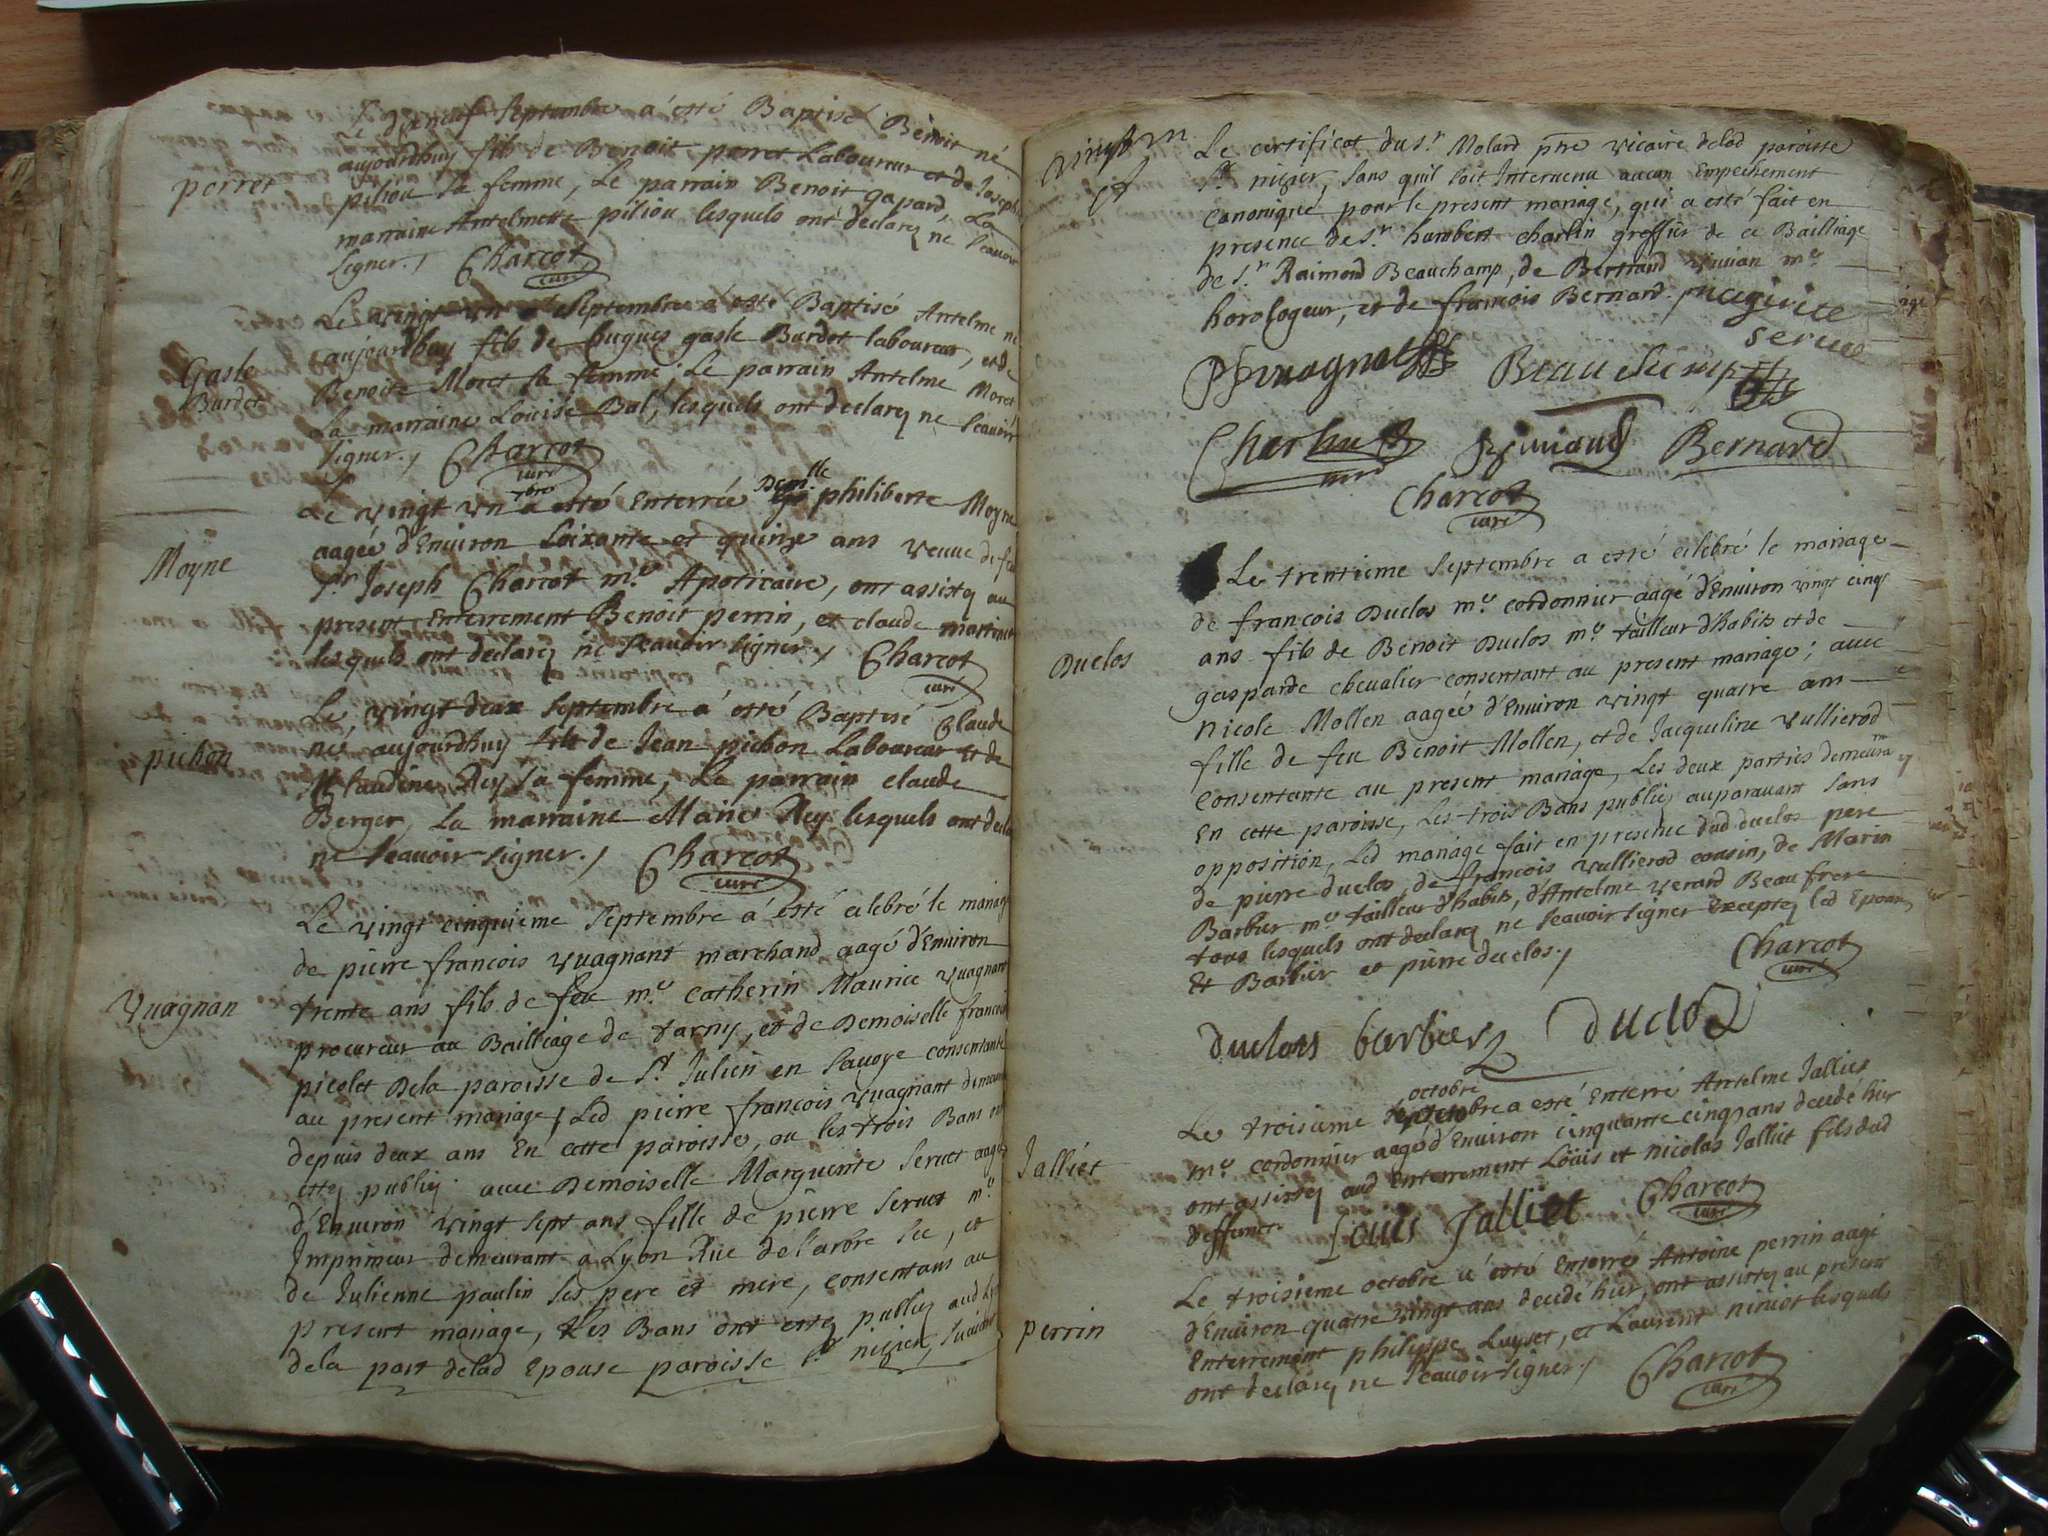 Le septembre a esté Baptisé Benoit né
aujourdhuy fils de Benoit perret Laboureur et de Joseph
perret
piliou sa femme, Le parrain Benoit gapard La
marraine Antelmette piliou lesquels ont declarez ne sçavoir
signer./ Charcot
curé
Le vingt un septembre a esté Baptisé Antelme né
aujourdhuy fils de hugues gasle Burdet laboureur, et de
Gasle
Burdet
Benoite Moret sa femme, Le parrain Antelme Moret
La marraine Louise Bal, lesquels ont declarez ne sçavoir
signer./ Charcot
curé
Le vingt un 7bre a esté Enterrée Dem.lle philiberte Moyne
aagée d'Environ soixante et quinze ans veuve de feu
Moyne
Sr. Joseph Charcot me. Apoticaire, ont assistez au
present Enterrement Benoit perrin, et claude martinet
lesquels ont declarez ne sçavoir signer./ Charcot
curé
Le vingt deux septembre a esté Baptisé Claude
né aujourdhuy fils de Jean pichon Laboureur et de
pichon
Claudine Rey sa femme, Le parrain claude
Berger, La marraine Marie Rey lesquels ont decla
ne sçavoir signer./ Charcot
curé
Le vingt cinquieme septembre a esté celebré le mariage
de pierre francois vuagnant marchand aagé d'Environ
Vuagnan
trente ans fils de feu me. catherin Maurice vuagnant
procureur au Bailliage de , et de Demoiselle francoi
picolet Dela paroisse de St. Julien en Savoye consentante
au present mariage, Led pierre francois vuagnant demeurant
depuis deux ans En cette paroisse, ou les trois Bans
estez publiez avec Demoiselle Marguerite Servet aagée
d'Environ vingt sept ans fille de pierre Servet me.
Imprimeur demeurant a Lyon Rüe de l'arbre sec, et
de Julienne paulin ses pere et mere, consentans au
present mariage, Les Bans ont estez publiez aud Lyon
dela part delad Epouse paroisse St. nizier, suivant
Le certificat du Sr. Molard ptre vicaire delad paroisse
St. nizier, sans qu'il soit Intervenu aucun Empechement
canonique pour le present mariage, qui a esté fait en
presence de Sr. humbert charlin greffier de ce Bailliage
de Sr. Raimond Beauchamp, de Bertrand vivian me.
horologeur, et de francois Bernard.
Servet
Beauchamp
Bernard
Charcot
curé
Le trentieme septembre a esté celebré le mariage
de francois Duclos me. cordonnier aagé d'Environ vingt cinq
ans fils de Benoit Duclos me. tailleur d'habits et de
Duclos
gasparde chevalier consentant au present mariage; avec
Nicole Mollen aagée d'Environ vingt quatre ans
fille de feu Benoit Mollen, et de Jacqueline vullierod
consentante au present mariage, Les deux parties demeurantz
En cette paroisse, Les trois Bans publiez auparavant sans
opposition, Led mariage fait en presence dud duclos pere
de pierre duclos, de francois vullierod cousin, de Marin
Barbier me. tailleur d'habits, d'Antelme verard Beau frere
tous lesquels ont declarez ne sçavoir signer Exceptez led Epoux
Et Barbier et pierre duclos./
Charcot
curé
duclos barbier duclos
Le troisieme octobre a esté Enterré Antelme Jalliet
me. cordonnier aagé d'Environ cinquante cinq ans decedé hier
Jalliet
ont assistez aud Enterrement Loüis et nicolas Jalliet fils dud
deffunct. Louis Jalliet Charcot
curé
Le troisieme octobre a esté Enterré Antoine perrin aagé
d'Environ quatre vingt ans decedé hier, ont assistez au present
perrin
Enterrement philippe Luyset, et Laurent lesquels
ont declarez ne sçavoir signer./ Charcot
curé